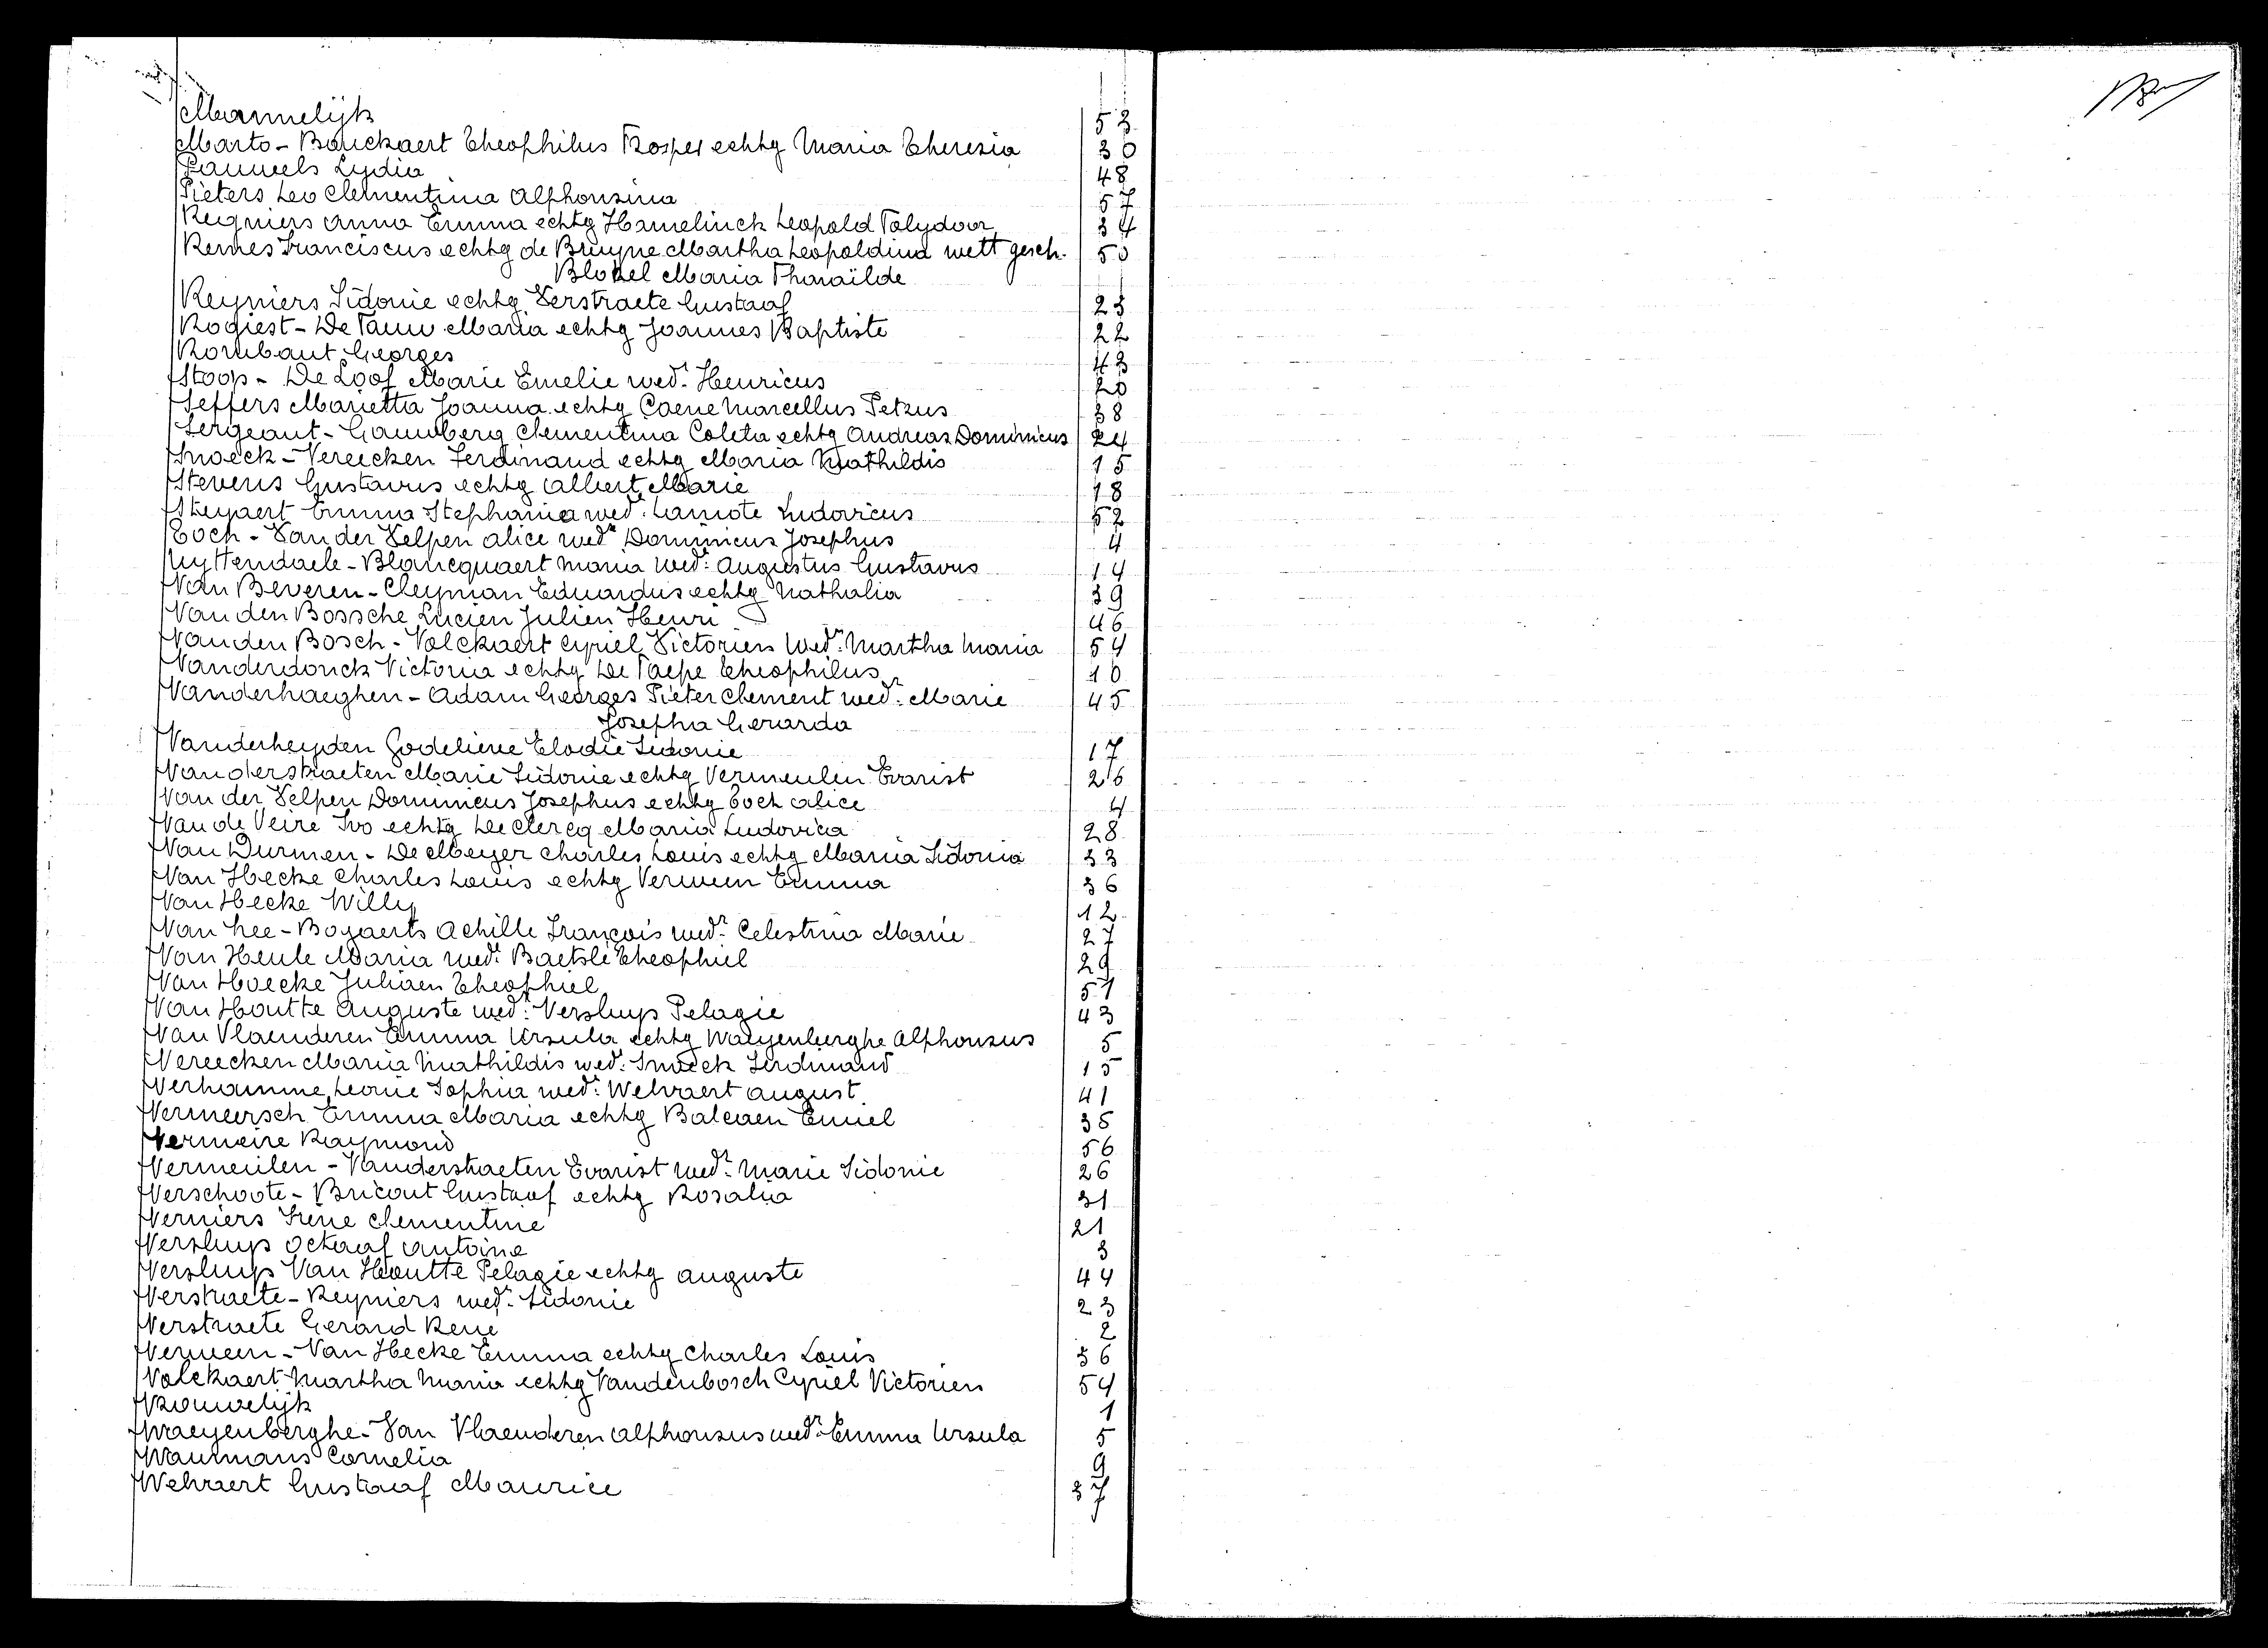 Mannelijk 53
Marto - Bouckaert Theophilus Prosper echtg Maria Theresia 30
Pauwels Lydia 48
Pieters Leo Clementina Alphonsina 57
Reigniers Anna Emma echtg Hamelinck Leopold Polydoor 34
Remes Franciscus echtg de Bruyne Martha Leopoldina wett gesch. 50
Blokel Maria Pharaïlde
Reyniers Sidonie echtg Verstraete Gustaaf 23
Rogiest - De Pauw Maria echtg Joannes Baptiste 22
Rombaut Georges 43
Stoop - De Loof Marie Emelie wedr. Henricus 20
Seffers Marietta Joanna echtg Coene Marcellus Petrus 38
Sergeant - Gauwberg Clementina Coleta echtg Andreas Dominicus 24
Snoeck - Vereecken Ferdinand echtg Maria Mathildis 15
Stevens Gustavus echtg Albert Marie 18
Steyaert Emma Stephania wed. Lamote Ludovicus 52
Toch - Van der Velpen Alice wedr Dominicus Josephus 4
Uyttendaele - Blancquaert Maria wedr. Augustus Gustavus 14
Van Beveren - Cleyman Eduardus echtg Nathalia 39
Van den Bossche Lucien Julien Henri 46
Van den Bosch - Volckaert Cyriel Victorien wedr. Martha Maria 54
Vanderdonck Victoria echtg De Paepe Theophilus 10
Vanderhaeghen - Adam Georges Pieter Clement wedr. Marie 45
Josepha Gerarda
Vanderheyden Godelieve Elodie Sidonie 17
Vanderstraeten Marie Sidonie echtg Vermeulen Evarist 26
Van der Velpen Dominicus Josephus echtg Toch Alice 4
Van de Veire Ivo echtg De Clercq Maria Ludovica 28
Van Durmen - De Meyer Charles Louis echtg Maria Sidonia 33
Van Hecke Charles Louis echtg Verween Emma 36
Van Hecke Willy 12
Van hee - Bogaerts Achille François wedr. Celestina Marie 27
Van Heule Maria wedr. Baetslé Theophiel 29
Van Hoecke Juliaen Theophiel 51
Van Houtte Auguste wedr. Versluys Pelagie 43
Van Vlaenderen Emma Ursula echtg Waeyenberghe Alphonsus 5
Vereecken Maria Mathildis wed. Snoeck Ferdinand 15
Verhamme Leonie Sophia wedr. Welvaert August 41
Vermeersch Emma Maria echtg Balcaen Emiel 35
Vermeire Raymond 56
Vermeulen - Vanderstraeten Evarist wedr. Marie Sidonie 26
Verschoote - Bricout Gustaaf echtg Rosalia 31
Verniers Irène Clementine 21
Versluys Octaaf Antoine 3
Versluys Van Houtte Pelagie echtg Auguste 44
Verstraete - Reyniers wedr. Sidonie 23
Verstraete Gerard Rene 2
Verween - Van Hecke Emma echtg Charles Louis 36
Volckaert Martha Maria echtg Vandenbosch Cyriel Victorien 54
Vrouwelijk 1
Waeyenberghe - Van Vlaenderen Alphonsus wedr. Emma Ursula 5
Waumans Cornelia 9
Welvaert Gustaaf Maurice 37